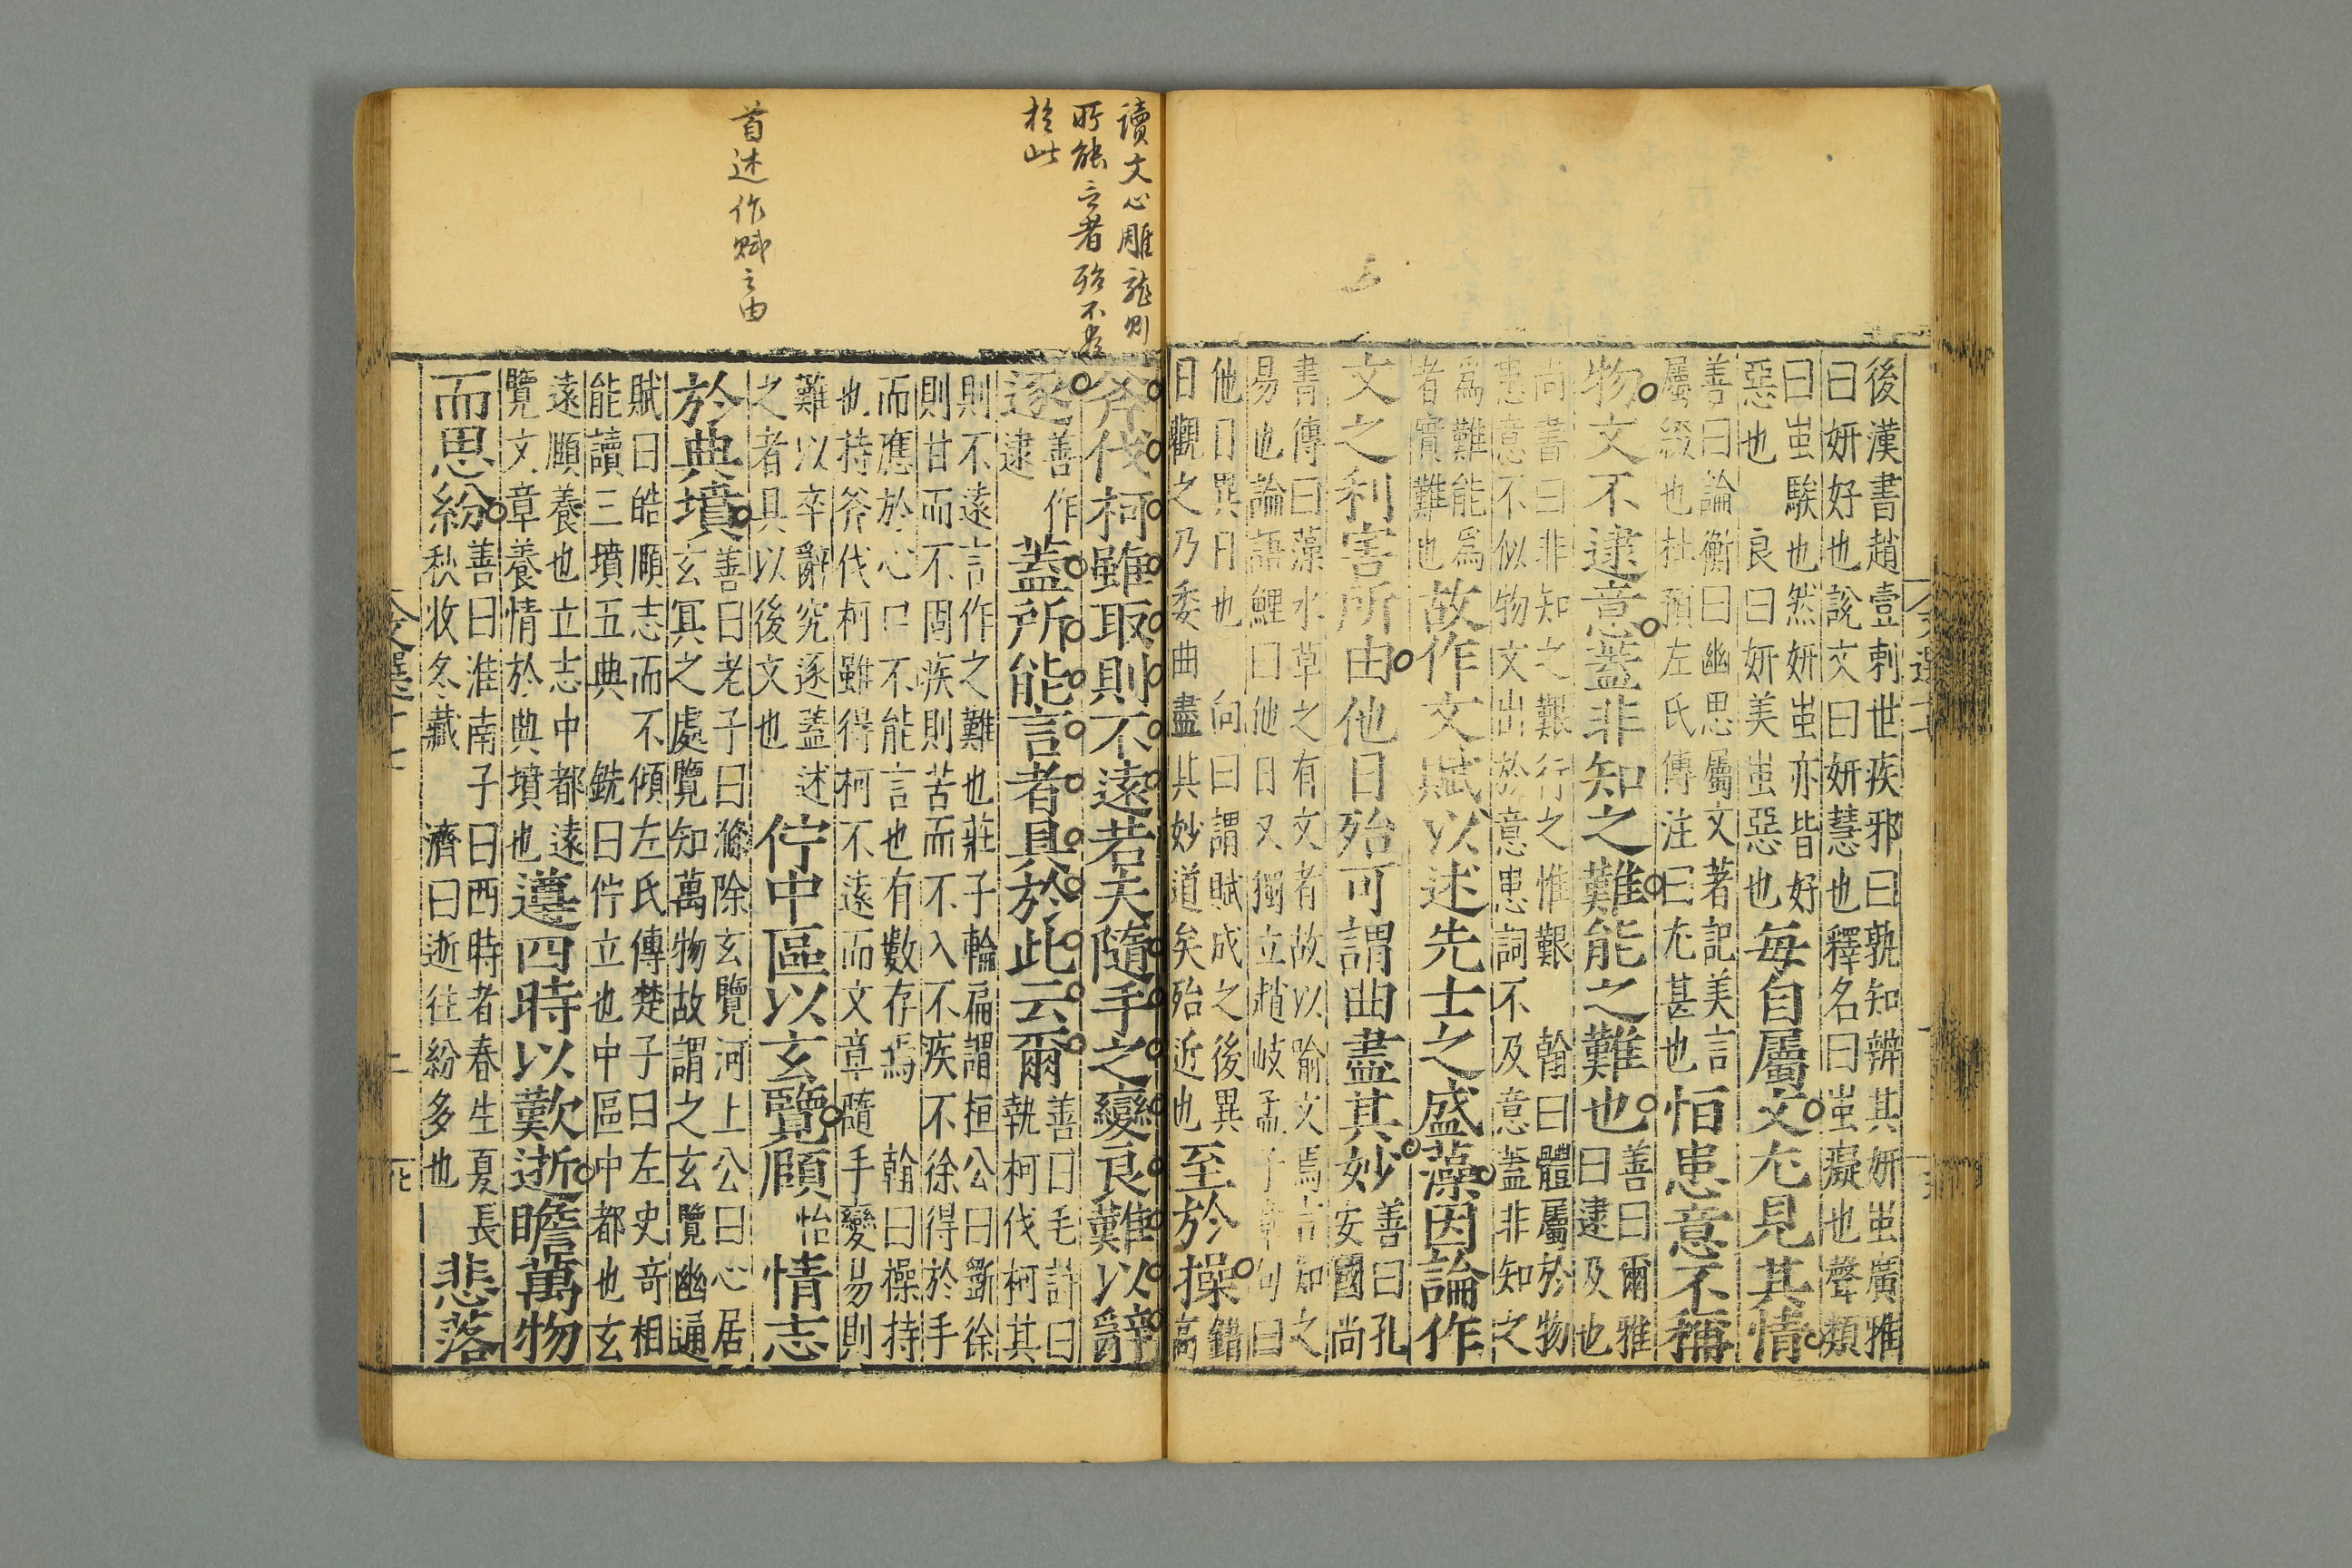 後漢書趙壹刺世疾邪曰孰知辨其妍蚩廣雅
曰妍好也說文曰妍慧也釋名曰蚩癡也聲類
曰蚩騃也然妍妍蚩亦皆好
惡也 良曰妍美蚩惡也 每自屬文尤見其情
善曰論衡曰幽思屬文著記美言
屬綴也杜預左氏傳注曰尤甚也 恒患意不稱
物文不逮意蓋非知之難能之難也 善曰爾雅
曰逮及也
尚書曰非知之艱行之惟艱 翰曰體屬於物
患意不似物文出於意患詞不及意蓋非知之
為難能為
者實難也 故作文賦以述先士之盛藻因論作
文之利害所由他日殆可謂曲盡其妙 善曰孔
安國尚
書傳曰藻水草之有文者故以喻文焉言知之
易也論語鯉曰他日又獨立趙岐孟子章句曰
他日異日也 向曰謂賦成之後異
日觀之乃委曲盡其妙道矣殆近也 至於操
錯
高
文選十七
讀文心雕龍則
所能言者殆不盡
於此
首述作賦之由
斧伐柯雖取則不遠若夫隨手之變良難以辭
逐 善作
逮 蓋所能言者具於此云爾 善曰毛詩曰
執柯伐柯其
則不遠言作之難也莊子輪扁謂桓公曰斲徐
則甘而不固疾則苦而不入不疾不徐得於手
而應於心口不能言也有數存焉 翰曰操持
也持斧伐柯雖得柯不遠而文章隨手變易則
難以卒辭究逐蓋述
之者具以後文也 佇中區以玄覽頤 怡 情志
於典墳 善曰老子曰滌除玄覽河上公曰心居
玄冥之處覽知萬物故謂之玄覽幽通
賦曰皓頤志而不傾左氏傳楚子曰左史奇相
能讀三墳五典 銑曰佇立也中區中都也玄
遠頤養也立志中都遠
覽文章養情於典墳也 遵四時以歎逝瞻萬物
而思紛 善曰淮南子曰西時者春生夏長
秋收冬藏 濟曰逝往紛多也 悲落
文選十七